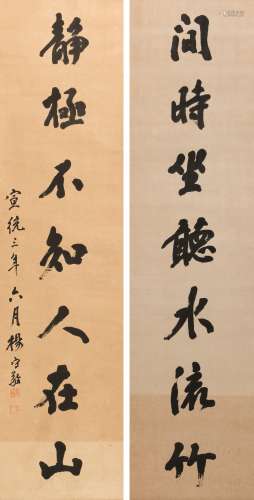 間時坐聽水流竹
靜極不知人在山
宣統三年六月楊守敬